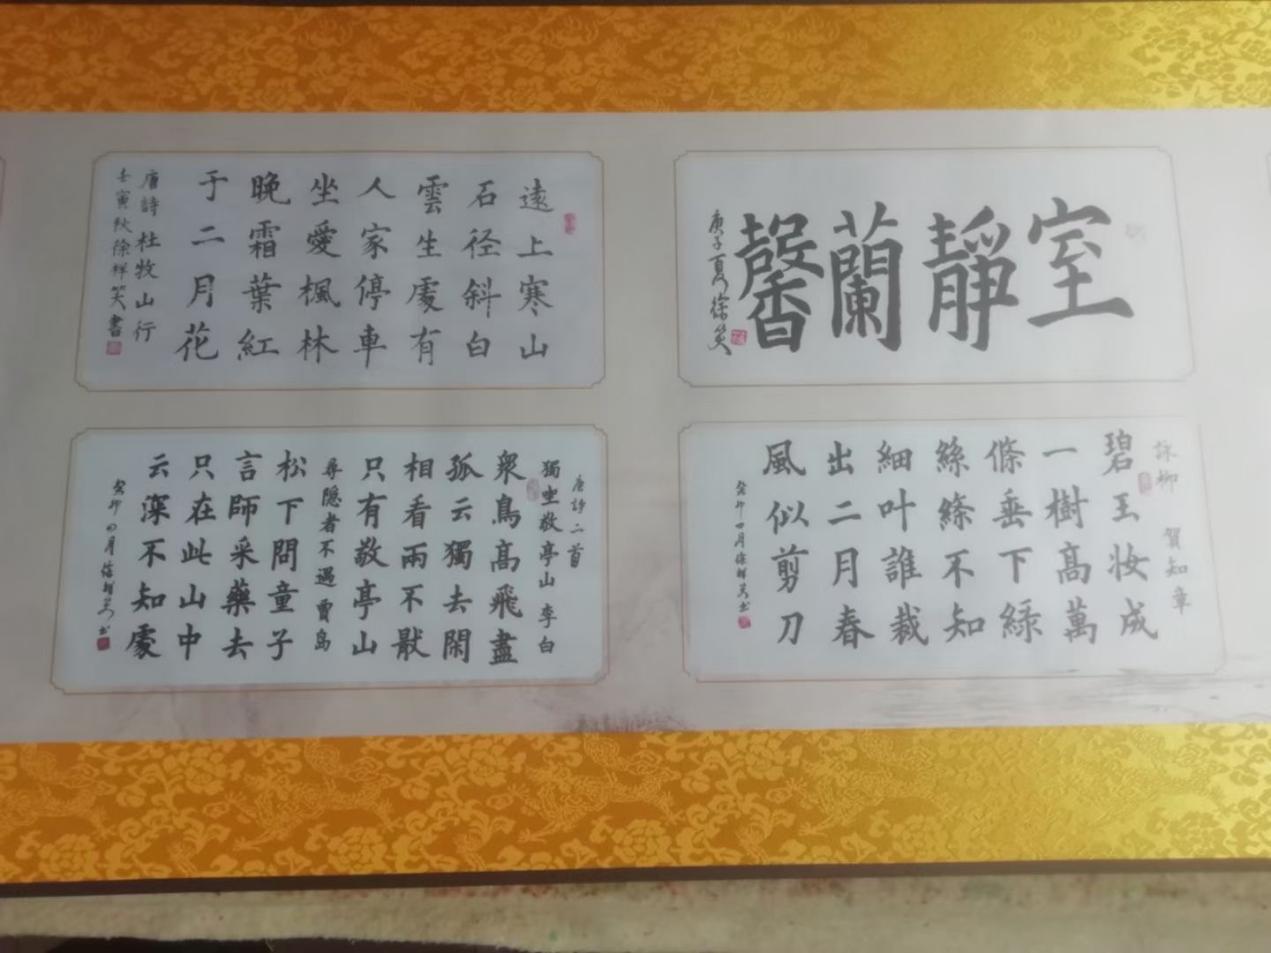 室靜蘭馨
庚子夏徐笑
遠上寒山
石径斜白
雲生處有
人家停車
坐愛楓林
晚霜葉紅
于二月花
唐詩杜牧山行
壬寅秋徐祥笑書
詠柳 賀知章
碧玉妆成
一樹髙萬
條垂下綠
絲絛不知
細叶誰裁
出二月春
風似剪刀
癸卯四月徐祥笑书
唐詩二首
獨坐敬亭山 李白
衆鳥髙飛盡
孤云獨去閑
相看兩不厭
只有敬亭山
尋隐者不遇 賈島
松下問童子
言師采藥去
只在此山中
云深不知處
癸卯四月徐祥笑书